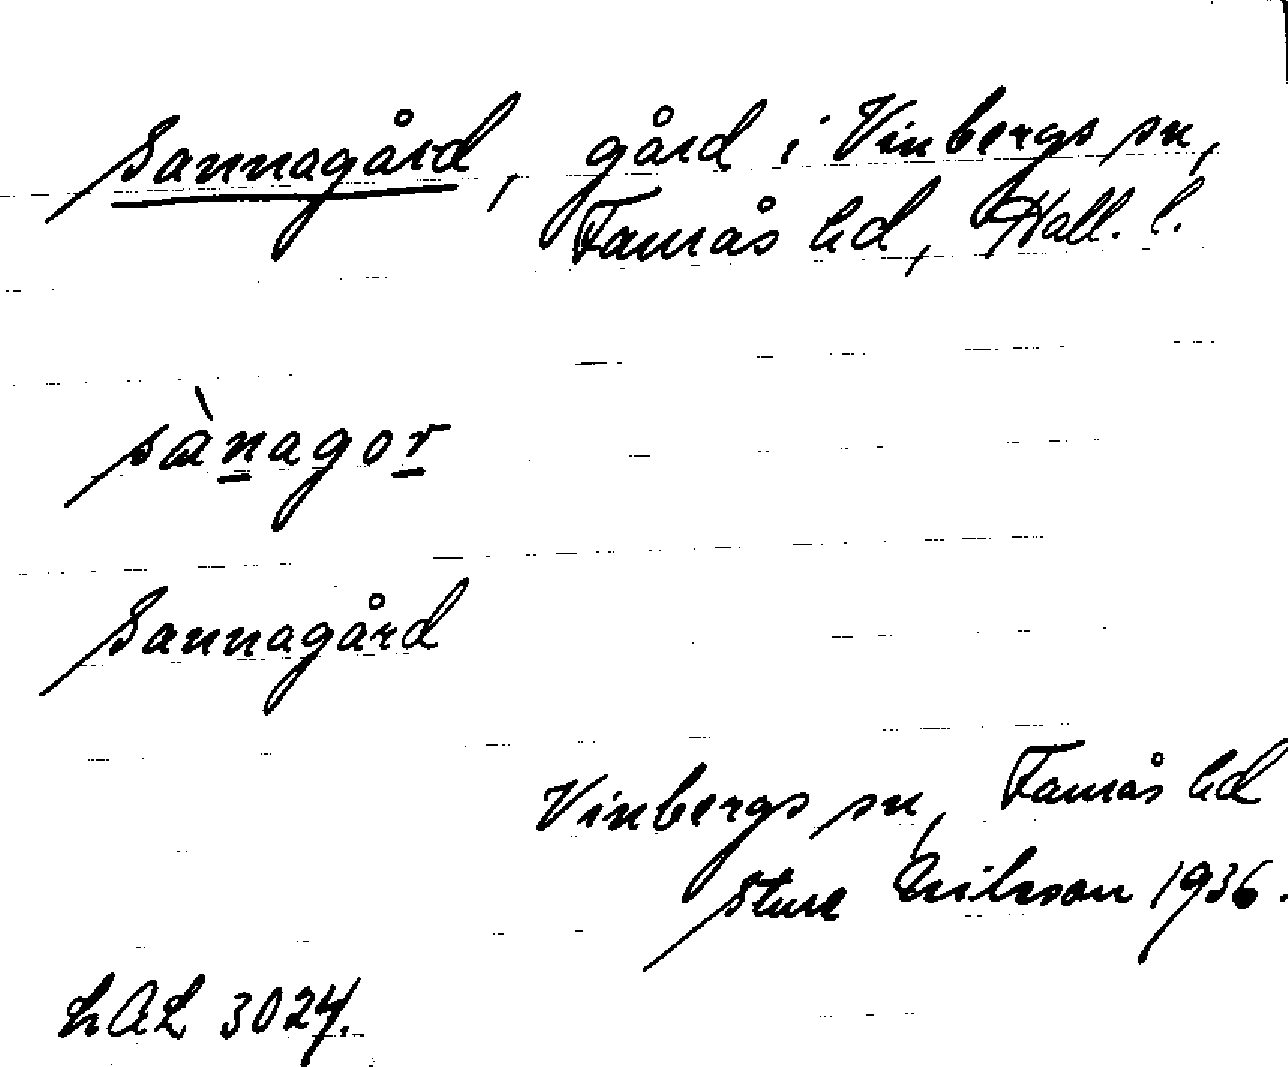 Sannagård, gård i Vinbergs sn,
Faurås hd, Hall. l.
sànagor
Sannagård
Vinbergs sn, Faurås hd
Sture Erikson 1936.
LAL 3024.